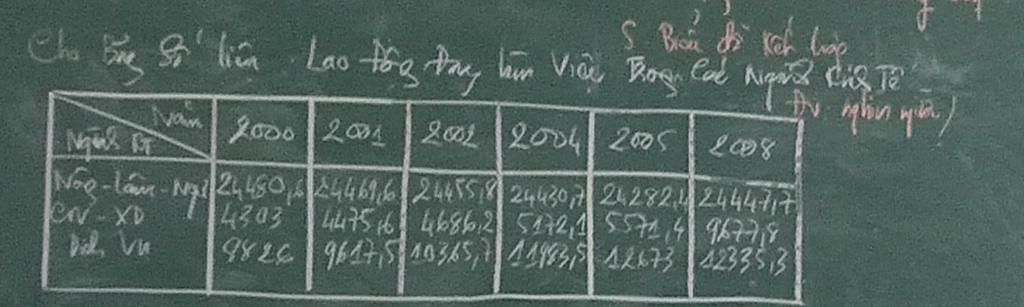 5 Biểu đồ kết hợp
Cho bảng số liệu Lao động đang làm việc trong các ngành kinh tế
Đv: nghìn người)
Năm 2000 2001 2002 2004 2005 2008
Ngành KT
Nông-lâm-Ngư 24480,6 24469,6 24455,8 24430,7 24282,4 24447,7
CN-XD 4303 4475,6 4686,2 5172,1 5571,4 9677,8
Dịch Vụ 9826 9617,5 10365,7 11983,5 12673 12335,3